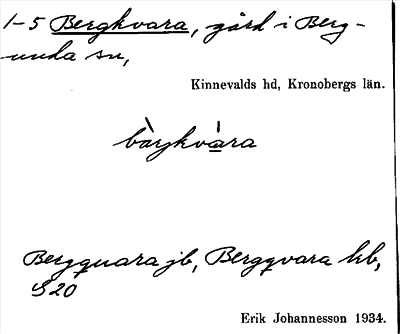 1-5 Bergkvara, gård i Berg-
unda sn,
Kinnevalds hd, Kronobergs län.
bàrykvára
Bergquara jb, Bergqvara hb,
S20
Erik Johannesson 1934.